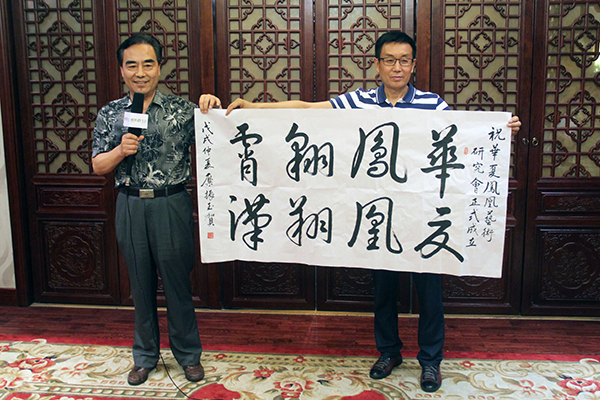 祝華夏鳳凰藝術
研究會正式成立
華夏
鳳凰
翱翔
霄漢
戊戌仲夏振玉賀